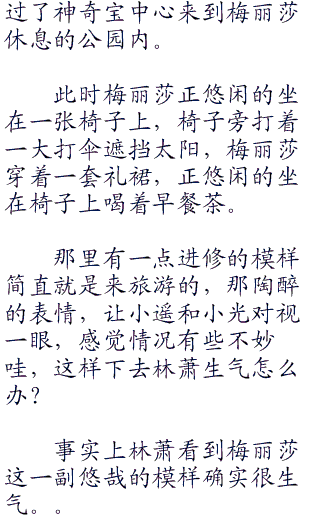 过了神奇宝中心来到梅丽莎
休息的公园内。
此时梅丽莎正悠闲的坐
在一张椅子上，椅子旁打着
一大打伞遮挡太阳，梅丽莎
穿着一套礼裙，正悠闲的坐
在椅子上喝着早餐茶。
那里有一点进修的模样
简直就是来旅游的，那陶醉
的表情，让小遥和小光对视
一眼，感觉情况有些不妙
哇，这样下去林萧生气怎么
办？
事实上林萧看到梅丽莎
这一副悠哉的模样确实很生
气。。